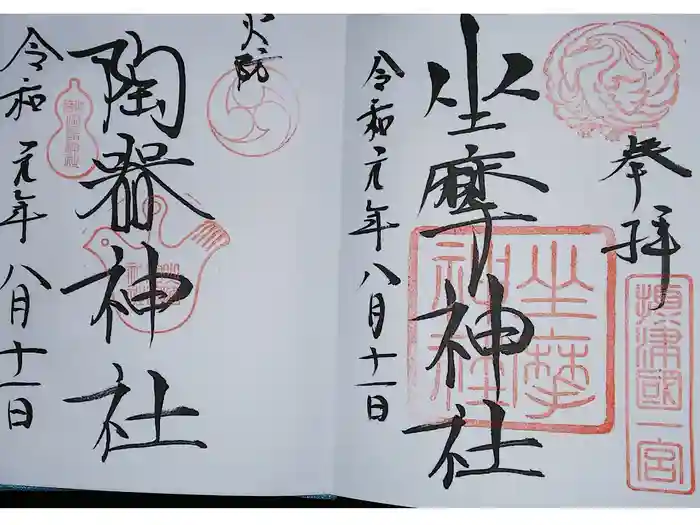 奉拝
攝津國一宮
坐摩神社
坐摩神社
令和元年八月十一日
火防
陶器神社
令和元年八月十一日